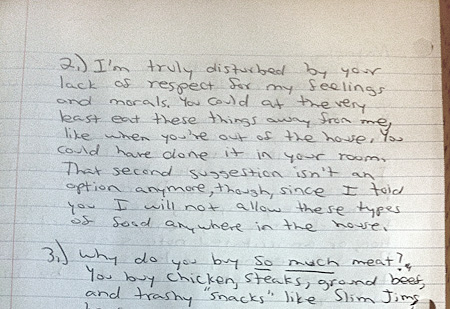 2.) I'm truly disturbed by your
lack of respect for my feelings
and morals. You could at the very
least eat these things away from me,
like when you're out of the house. You
could have done it in your room.
That second suggestion isn't an
option anymore, though, since I told
you I will not allow these types
of food anywhere in the house.
3.) Why do you buy so much meat?
You buy chicken, steaks, ground beef,
and trashy "snacks" like Slim Jims,